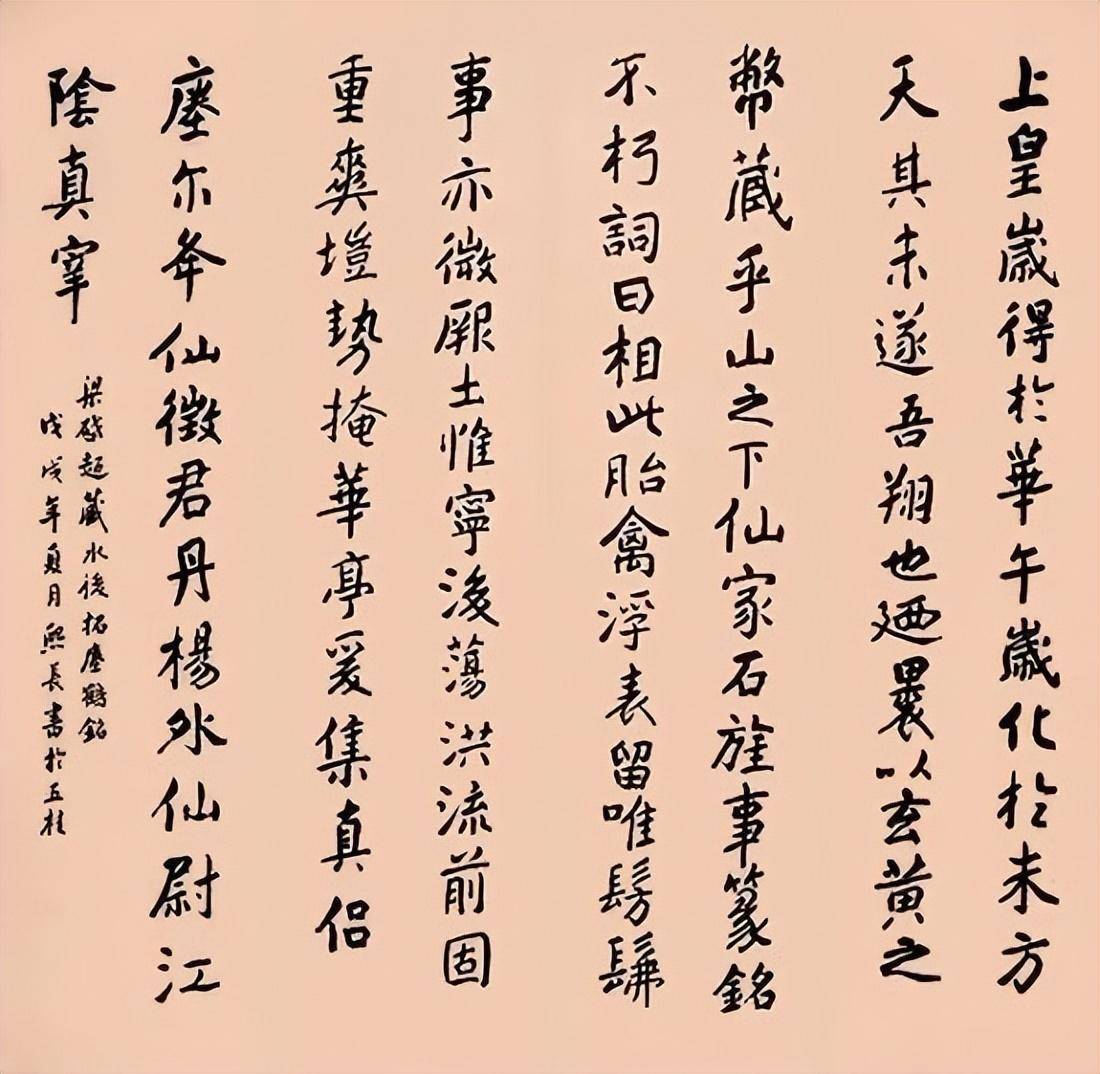 上皇歲得於華午歲化於未方
天其未遂吾翔也廼裹以玄黄之
幣藏乎山之下仙家石旌事篆銘
不朽詞曰相此胎禽浮表留唯髣髴
事亦微厥土惟寧後蕩洪流前固
重爽塏勢掩華亭爰集真侣
瘞尔夅仙徵君丹楊外仙尉江
陰真宰
梁啟超藏水後拓瘞鶴銘
戊戌年夏月熙長書於五桂